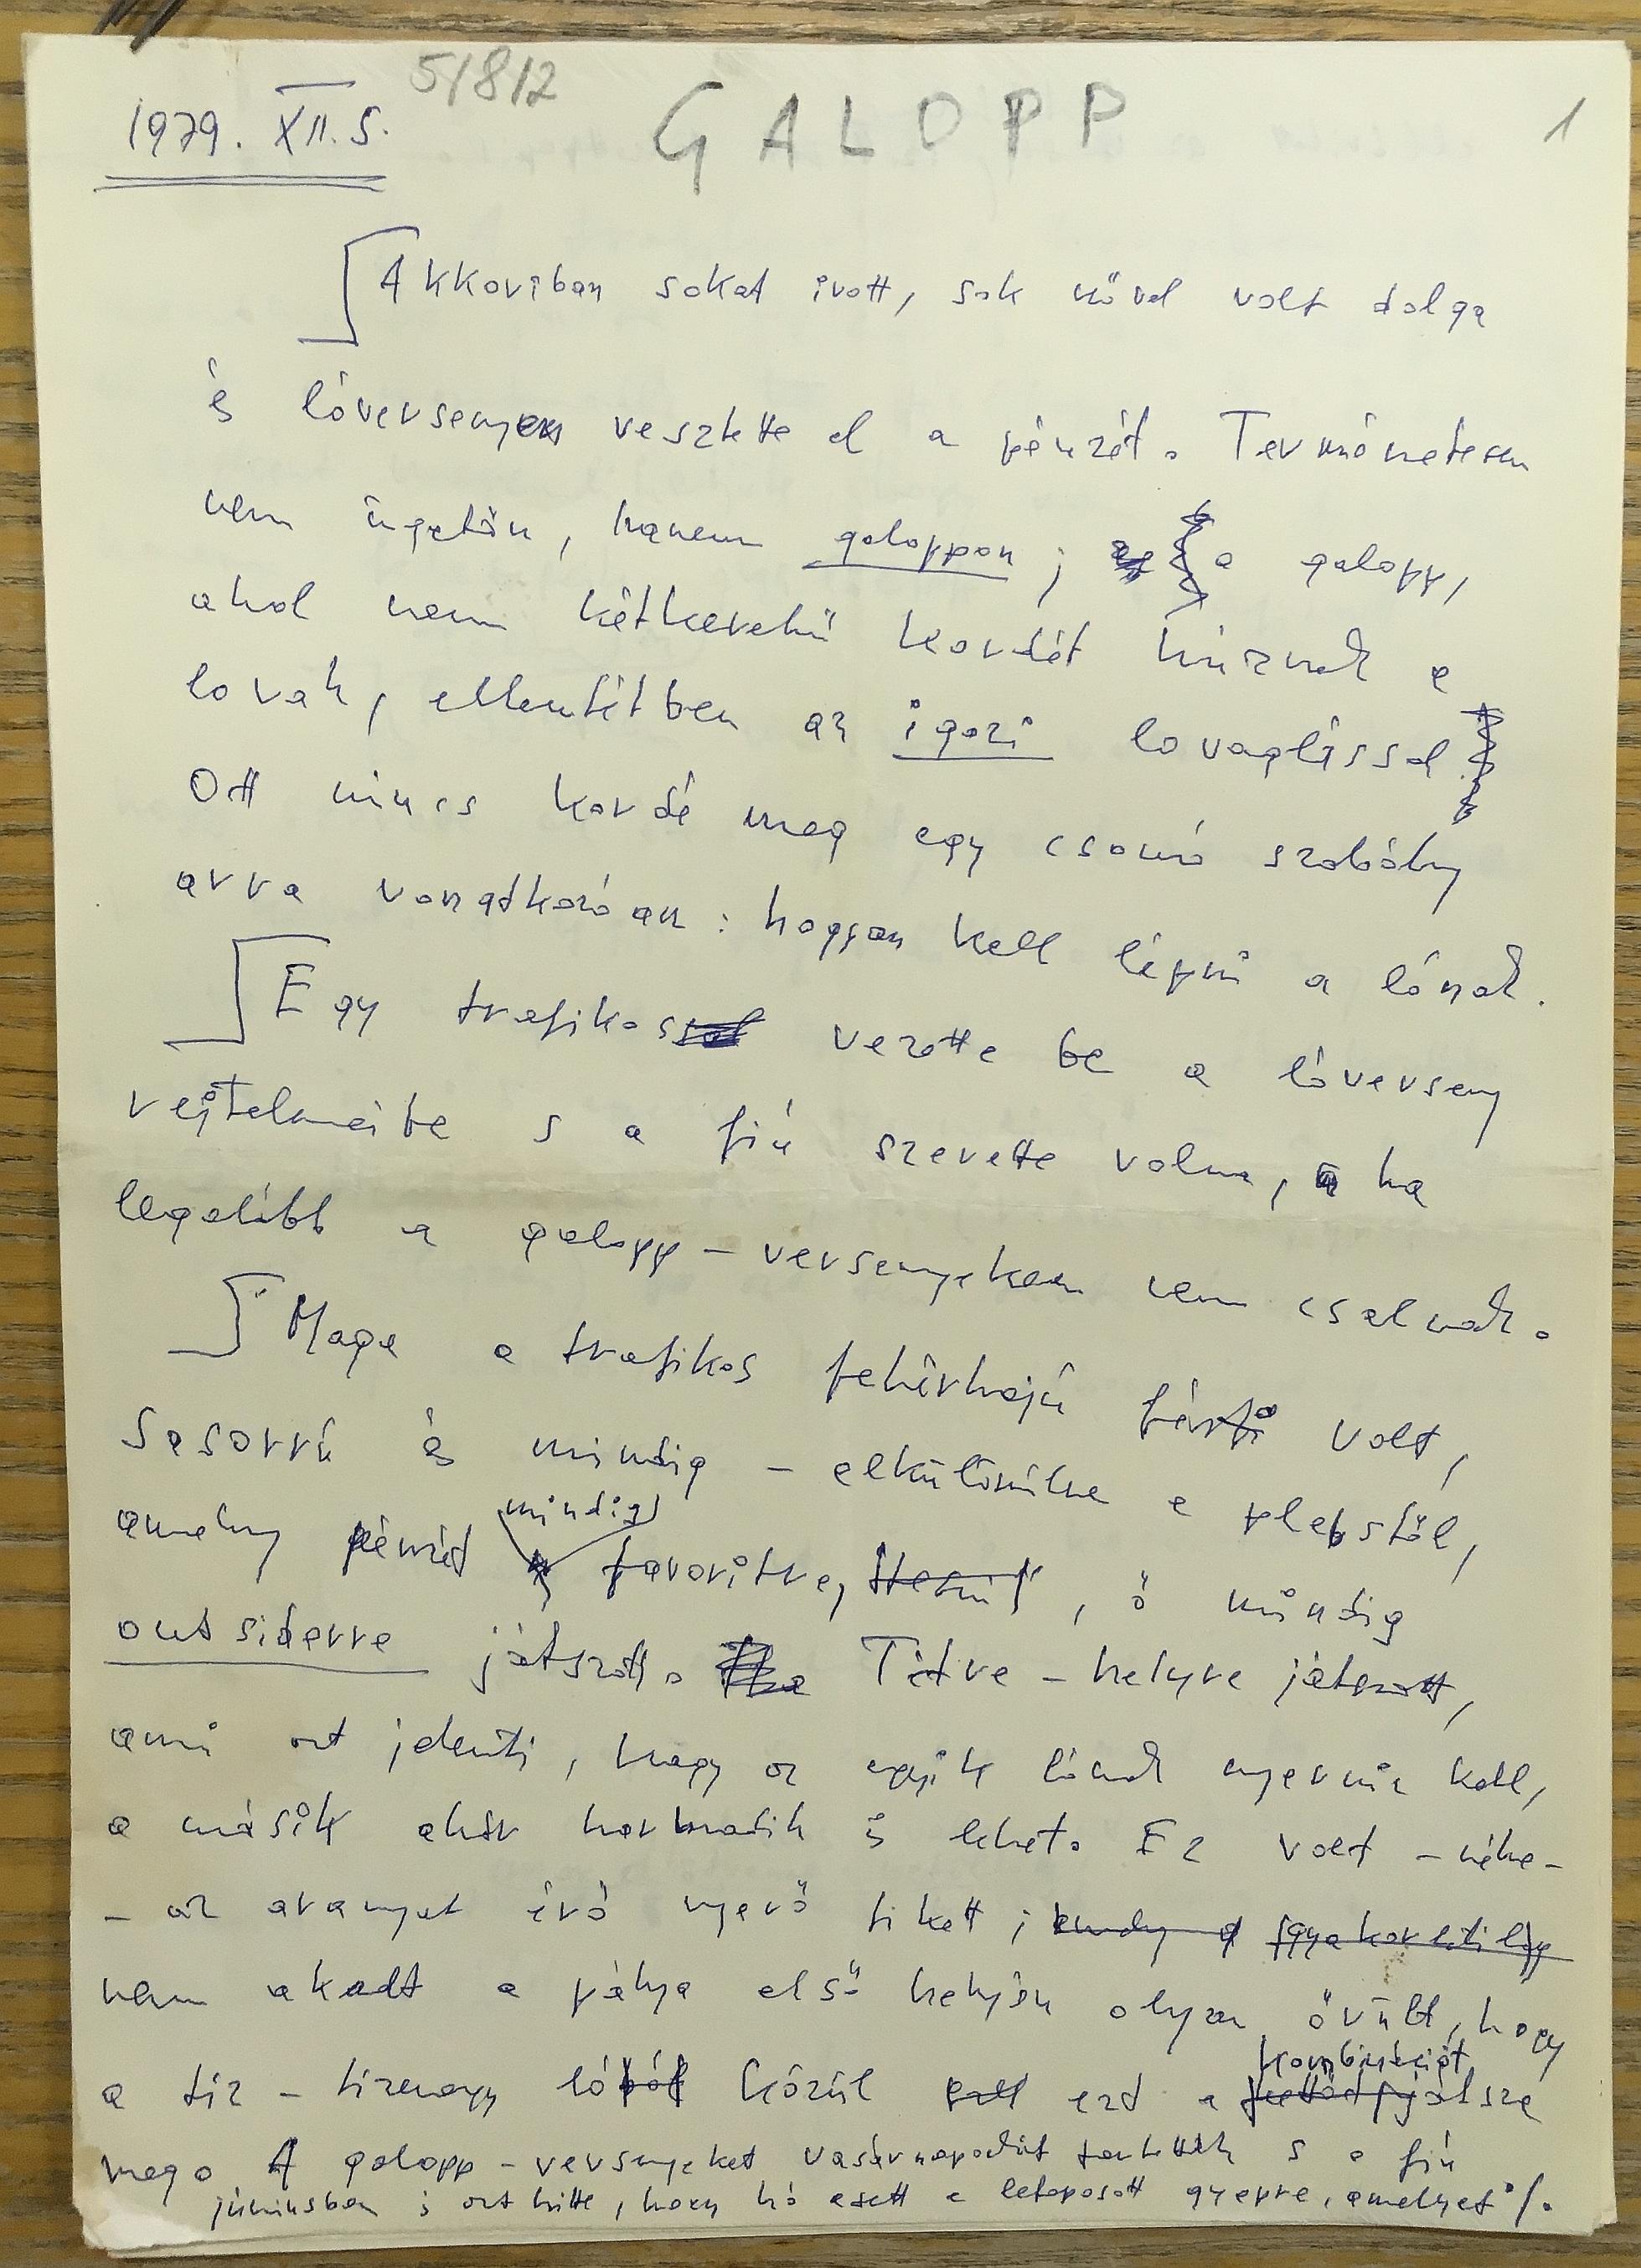 51812
1979. XII. 5.
GALOPP
1
Akkoriban sokat ivott, sok nővel volt dolga
és lóversenyen vesztette el a pénzét. Természetesen
nem ügetőn, hanem galoppon; a galopp,
ahol nem kétkerekű kordét húznak a
lovak, ellentétben az igazi lovaglással.
Ott nincs kordé meg egy csomó szabály
arra vonatkozóan: hogyan kell lépni a lónak.
Egy trafikos vezette be a lóverseny
rejtelmeibe s a fiú szerette volna, ha
legalább a galopp-versenyeken nem csalnak.
Maga a trafikos fehérhajú férfi volt,
sasorrú és mindig – elkülönülve a plebstől,
mindig
amely pénzét favoritre, ő mindig
outsiderre játszott. Tétre-helyre játszott,
ami azt jelenti, hogy az egyik lónak nyernie kell,
a másik akár harmadik is lehet. Ez volt – néha –
– az aranyat érő nyerő tikett;
nem akadt a pálya első helyén olyan őrült, hogy
kombinációt
a tíz – tizenegy ló közül ezt a játsza
meg. A galopp-versenyeket vasárnaponként tartották s a fiú
júniusban is azt hitte, hogy hó esett a letaposott gyepre, amelyet ·/.